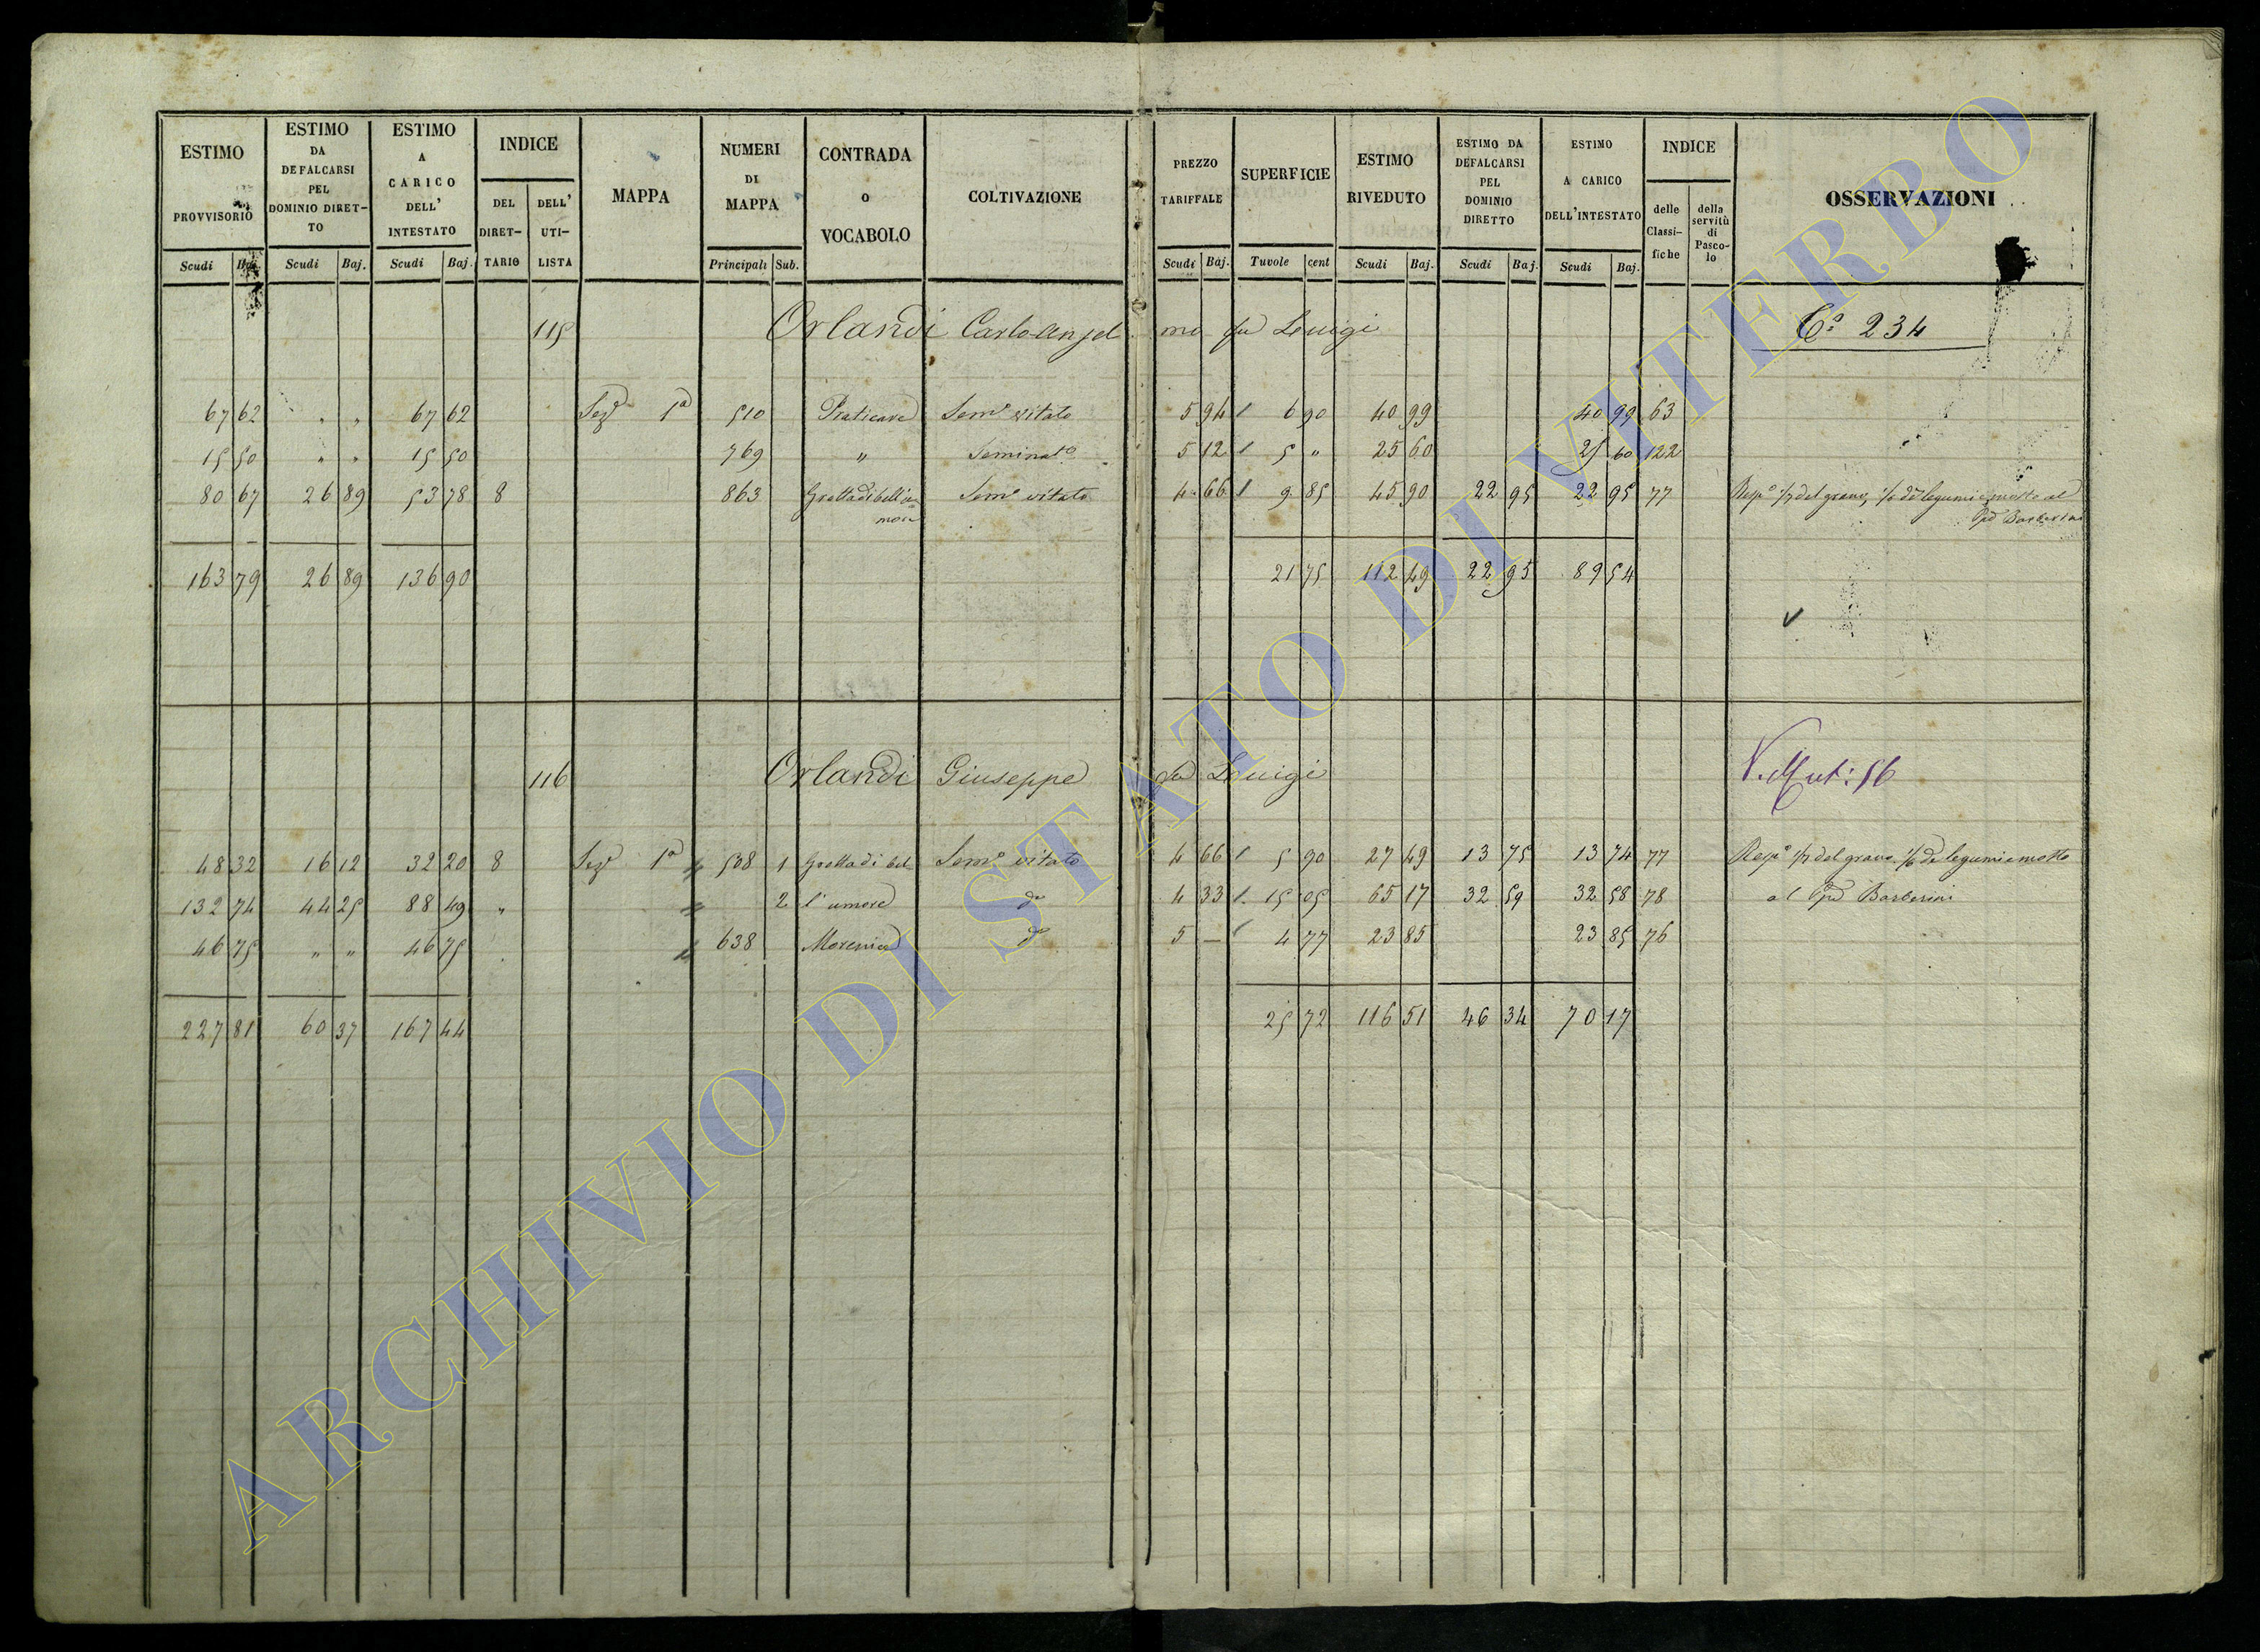 ESTIMO PROVVISORIO Scudi Baj.
ESTIMO DA DEFALCARSI PEL DOMINIO DIRETTO Scudi Baj.
ESTIMO A CARICO DELL' INTESTATO Scudi Baj.
INDICE DEL DIRETTARIO DELL' UTILISTA
MAPPA
NUMERI DI MAPPA Principali Sub.
CONTRADA o VOCABOLO
COLTIVAZIONE
PREZZO TARIFFALE Scudi Baj.
SUPERFICIE Tavole cent
ESTIMO RIVEDUTO Scudi Baj.
ESTIMO DA DEFALCARSI PEL DOMINIO DIRETTO Scudi Baj.
ESTIMO A CARICO DELL'INTESTATO Scudi Baj.
INDICE delle Classifiche della servitù di Pascolo
OSSERVAZIONI
115 Orlandi Carlo Angelmo fu Luigi Cº 234
67 62 " " 67 62 Sezº 1ª 510 Praticare Semº vitato 5 94 1 6 90 40 99 40 99 63
15 50 " " 15 50 769 " Seminatº 5 12 1 5 " 25 60 25 60 122
80 67 26 89 53 78 8 863 Grotta di bell'u Semº vitato 4 66 1 9 85 45 90 22 95 22 95 77 Respº 1/7 del grano, 1/6 de legumi e mosto al
more Ppe Barberini
163 79 26 89 136 90 21 75 112 49 22 95 89 54
116 Orlandi Giuseppe fu Luigi V. Mut: 56
48 32 16 12 32 20 8 Sezº 1ª 508 1 Grotta di bel Semº vitato 4 66 1 5 90 27 49 13 75 13 74 77 Respº 1/7 del grano 1/6 de legumi e mosto
132 74 44 25 88 49 " 2 l'umore dº 4 33 1 15 05 65 17 32 59 32 58 78 al Ppe Barberini
46 75 " " 46 75 638 dº 5 — 1 4 77 23 85 23 85 76
227 81 60 37 167 44 25 72 116 51 46 34 70 17
ARCHIVIO DI STATO DI VITERBO